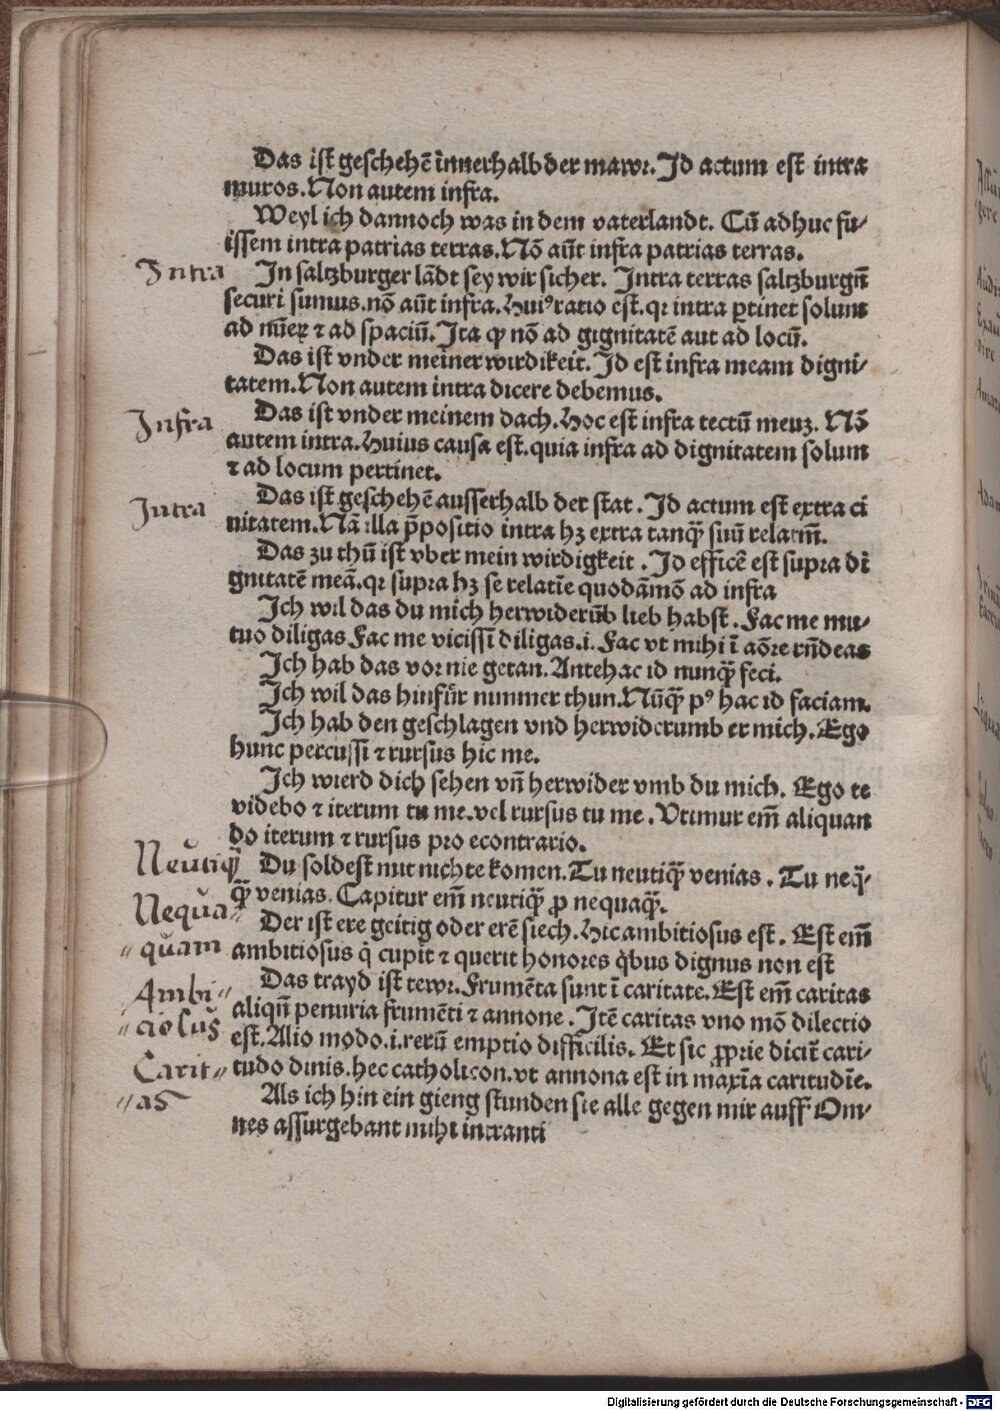 Das ist geschehē innerhalb der mawr. Id actum est intra
muros. Non autem infra.
Weyl ich dannoch was in dem vaterlandt. Cū adhuc fu⸗
issem intra patrias terras. Nō aūt infra patrias terras.
Intra
In saltzburger lādt sey wir sicher. Intra terras saltzburgn̄
securi sumus. nō aūt infra. Huiꝰ ratio est. qꝛ intra ꝑtinet solum
ad nūeꝝ ⁊ ad spaciū. Ita ꝙ nō ad gignitatē aut ad locū.
Das ist vnder meiner wirdikeit. Id est infra meam digni⸗
tatem. Non autem intra dicere debemus.
Infra
Das ist vnder meinem dach. Hoc est infra tectū meuꝫ. Nō
autem intra. Huius causa est. quia infra ad dignitatem solum
⁊ ad locum pertinet.
Intra
Das ist geschehē ausserhalb der stat. Id actum est extra ci
uitatem. Nā illa p̄positio intra hꝫ extra tanq̄ͣ suū relatiū.
Das zu thū ist vber mein wirdigkeit. Id efficē est supra di
gnitatē meā. qꝛ supra hꝫ se relatīe quodāmō ad infra
Ich wil das du mich herwiderūb lieb habst. Fac me mu⸗
tuo diligas Fac me vicissī diligas. i. Fac vt mihi ī aōre rn̄deas
Ich hab das vor nie getan. Antehac id nunq̄ͣ feci.
Ich wil das hinfür nimmer thun. Nūq̄ͣ pꝰ hac id faciam.
Ich hab den geschlagen vnd herwiderumb er mich. Ego
hunc percussi ⁊ rursus hic me.
Ich wierd dich sehen vn̄ herwider vmb du mich. Ego te
videbo ⁊ iterum tu me. vel rursus tu me. Vtimur em̄ aliquan
do iterum ⁊ rursus pro econtrario.
Neutiq̄ͣ
Du soldest nit nichte komen. Tu neutiq̄ͣ venias. Tu neq̄ͣ⸗
q̄ͣ venias. Capitur em̄ neutiq̄ͣ ꝓ nequaq̄ͣ.
Nequa⸗
⸗quam
Der ist ere geitig oder erē siech. Hic ambitiosus est. Est em̄
ambitiosus q̇ cupit ⁊ querit honores q̇bus dignus non est
Ambi⸗
⸗ciosus
Das trayd ist tewr. Frumēta sunt ī caritate. Est em̄ caritas
aliqn̄ penuria frumēti ⁊ annone. Itē caritas vno mō dilectio
est. Alio modo. i. rerū emptio difficilis. Et sic ꝓprie dicit̄ cari⸗
Carit⸗
⸗as
tudo dinis. hec catholicon. vt annona est in maxīa caritudīe.
Als ich hin ein gieng stunden sie alle gegen mir auff Om⸗
nes assurgebant mihi intranti
Digitalisierung gefördert durch die Deutsche Forschungsgemeinschaft - DFG